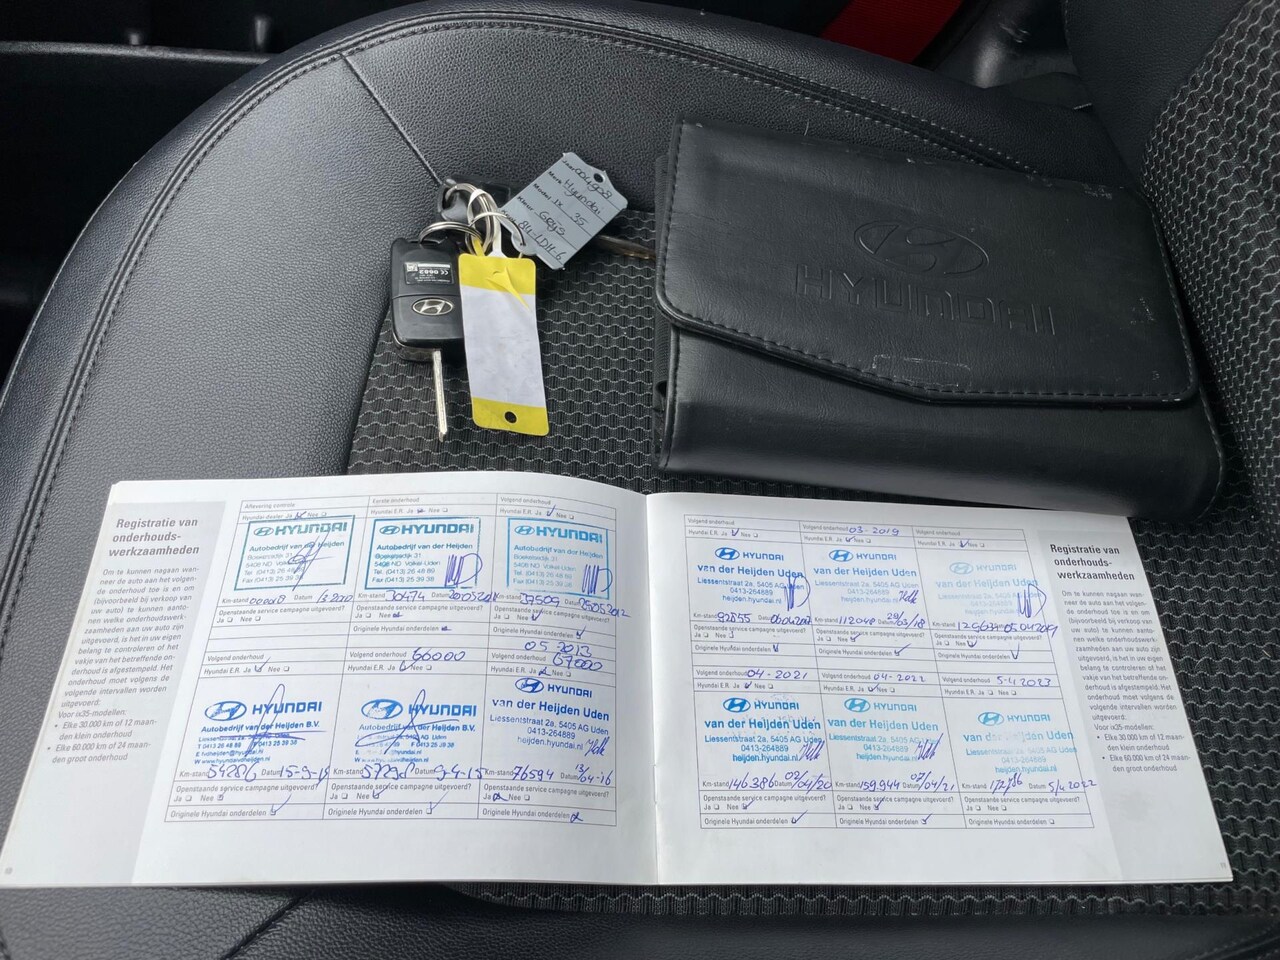 Hyundai
ix 35
Grijs
HYUNDAI
Registratie van
onderhouds-
werkzaamheden
Om te kunnen nagaan wan-
neer de auto aan het volgen-
de toe is en om
(bijvoorbeeld bij verkoop van
uw auto) te kunnen aanto-
nen welke onderhoudswerk-
zaamheden aan uw auto zijn
uitgevoerd, is het in uw eigen
belang te controleren of het
vakje van het betreffende on-
derhoud is afgestempeld. Het
onderhoud moet volgens de
volgende intervallen worden
uitgevoerd:
Voor ix35-modellen:
• Elke 30.000 km of 12 maan-
den klein onderhoud
• Elke 60.000 km of 24 maan-
den groot onderhoud
Aflevering controle
Hyundai dealer Ja Nee
HYUNDAI
Autobedrijf van der Heijden
Fax (0413) 25 39 38
Km-stand Datum
Openstaande service campagne uitgevoerd?
Eerste onderhoud
Hyundai E.R. Ja Nee
HYUNDAI
Autobedrijf van der Heijden
Boekelsedijk 31
Tel. (0413) 26 48 89
Fax (0413) 25 39 38
Km-stand 30474 Datum
Openstaande service campagne uitgevoerd?
Ja Nee
Originele Hyundai onderdelen
Volgend onderhoud
Hyundai E.R. Ja Nee
HYUNDAI
Autobedrijf van der Heijden
Boekelsedijk 31
Tel. (0413) 26 48 89
Fax (0413) 25 39 38
Km-stand 37509 Datum 25052012
Openstaande service campagne uitgevoerd?
Ja Nee
Originele Hyundai onderdelen
Volgend onderhoud
Hyundai E.R. Ja Nee
HYUNDAI
Autobedrijf van der Heijden B.V.
T 0413 26 48 89 F 0413 25 39 38
W www.hyundaivdheijden.nl
Km-stand 54286 Datum
Openstaande service campagne uitgevoerd?
Ja Nee
Originele Hyundai onderdelen
Volgend onderhoud 66000
Hyundai E.R. Ja Nee
HYUNDAI
Autobedrijf van der Heijden B.V.
F 0413 25 39 38
Km-stand Datum 9-4-15
Openstaande service campagne uitgevoerd?
Ja Nee
Originele Hyundai onderdelen
05 2013
Volgend onderhoud 67000
Hyundai E.R. Ja Nee
HYUNDAI
van der Heijden Uden
Liessentstraat 2a, 5405 AG Uden
0413-264889
heijden.hyundai.nl
Km-stand 76594 Datum 13/04-16
Openstaande service campagne uitgevoerd?
Ja Nee
Originele Hyundai onderdelen
Volgend onderhoud
Hyundai E.R. Ja Nee
HYUNDAI
van der Heijden Uden
Liessentstraat 2a, 5405 AG Uden
0413-264889
heijden.hyundai.nl
Km-stand 92855 Datum
Openstaande service campagne uitgevoerd?
Ja Nee
Originele Hyundai onderdelen
Volgend onderhoud 03-2019
Hyundai E.R. Ja Nee
HYUNDAI
van der Heijden Uden
Liessentstraat 2a, 5405 AG Uden
0413-264889
heijden.hyundai.nl
Km-stand 112048 Datum 29/03/18
Openstaande service campagne uitgevoerd?
Ja Nee
Originele Hyundai onderdelen
Volgend onderhoud
Hyundai E.R. Ja Nee
HYUNDAI
van der Heijden Uden
Liessentstraat 2a, 5405 AG Uden
0413-264889
heijden.hyundai.nl
Km-stand Datum 05042019
Openstaande service campagne uitgevoerd?
Ja Nee
Originele Hyundai onderdelen
Volgend onderhoud 04-2021
Hyundai E.R. Ja Nee
HYUNDAI
van der Heijden Uden
Liessentstraat 2a, 5405 AG Uden
0413-264889
heijden.hyundai.nl
Km-stand 146386 Datum 02/04/20
Openstaande service campagne uitgevoerd?
Ja Nee
Originele Hyundai onderdelen
Volgend onderhoud 04-2022
Hyundai E.R. Ja Nee
HYUNDAI
van der Heijden Uden
Liessentstraat 2a, 5405 AG Uden
0413-264889
heijden.hyundai.nl
Km-stand 159944 Datum 07/04/21
Openstaande service campagne uitgevoerd?
Ja Nee
Originele Hyundai onderdelen
Volgend onderhoud 5-4 2023
Hyundai E.R. Ja Nee
HYUNDAI
van der Heijden Uden
Liessentstraat 2a, 5405 AG Uden
0413-264889
heijden.hyundai.nl
Km-stand Datum 5/4 2022
Openstaande service campagne uitgevoerd?
Ja Nee
Originele Hyundai onderdelen
Registratie van
onderhouds-
werkzaamheden
Om te kunnen nagaan wan-
neer de auto aan het volgen-
de toe is en om
(bijvoorbeeld bij verkoop van
uw auto) te kunnen aanto-
nen welke onderhoudswerk-
zaamheden aan uw auto zijn
uitgevoerd, is het in uw eigen
belang te controleren of het
vakje van het betreffende on-
derhoud is afgestempeld. Het
onderhoud moet volgens de
volgende intervallen worden
uitgevoerd:
Voor ix35-modellen:
• Elke 30.000 km of 12 maan-
den klein onderhoud
• Elke 60.000 km of 24 maan-
den groot onderhoud